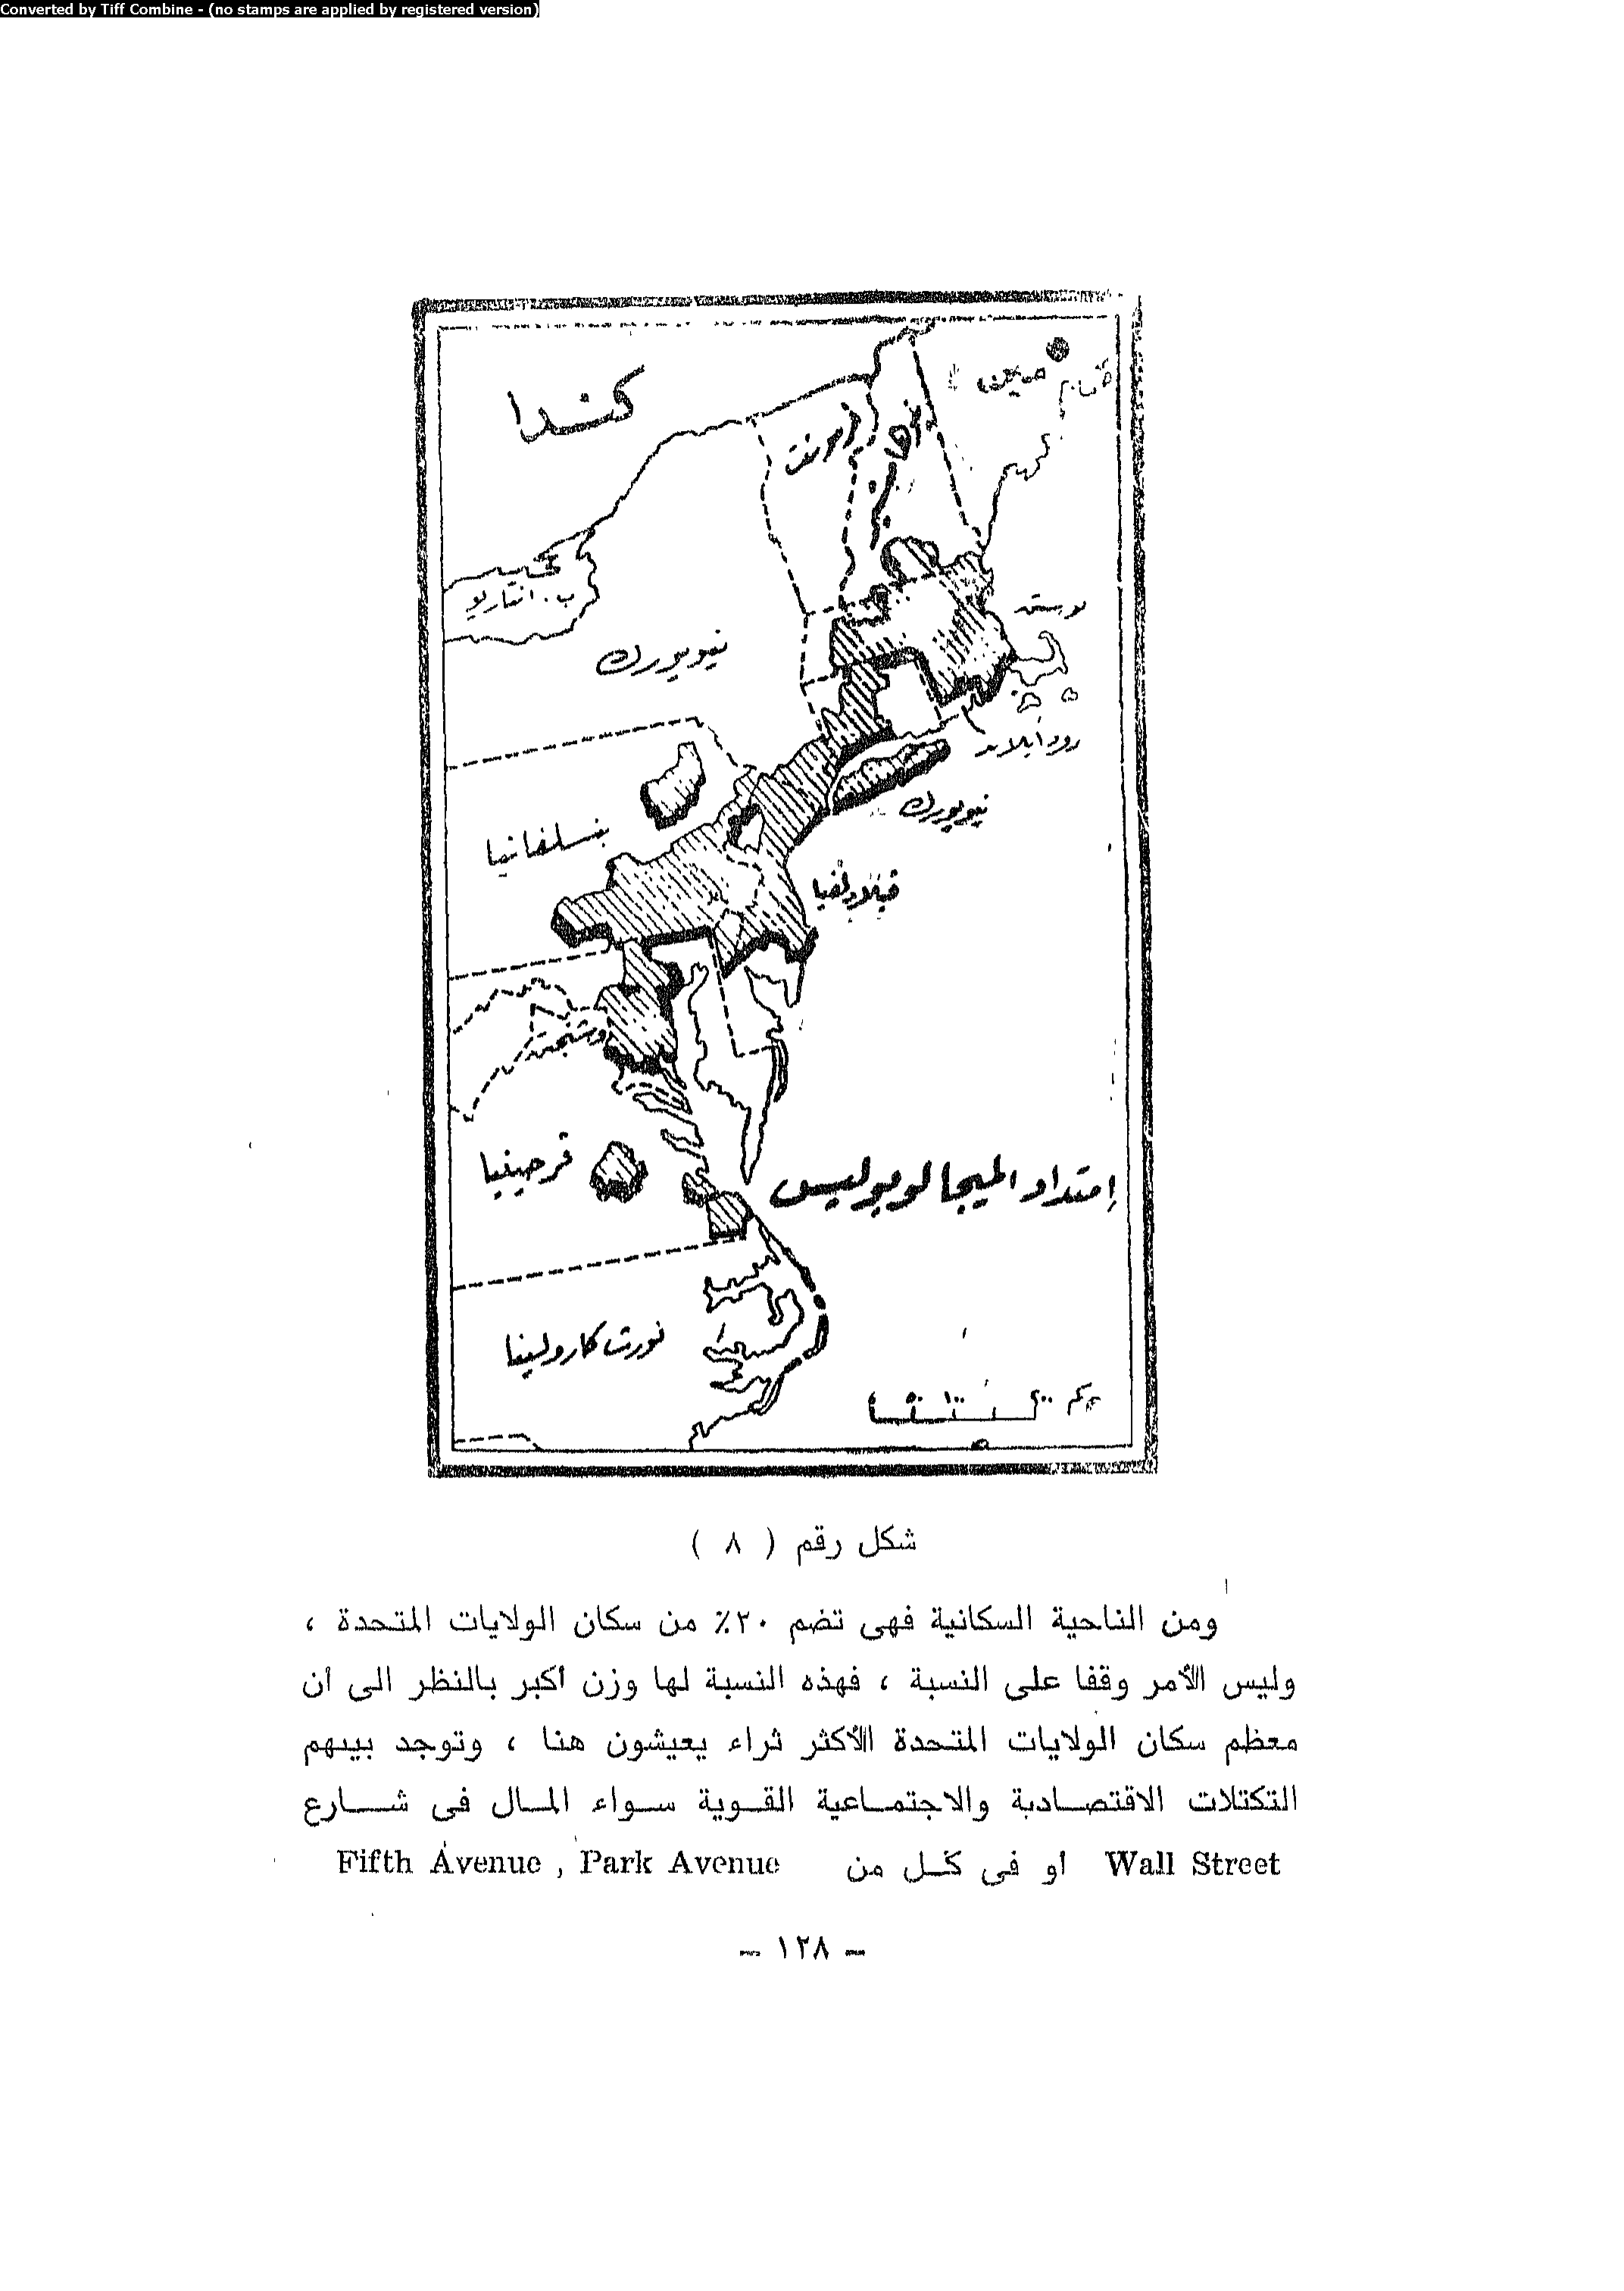 Converted by Tiff Combine - (no stamps are applied by registered version)
مين
كندا
فرمونت
بحيرة
ب. انتاريو
بوسطن
نيويورك
رود أيلاند
نيويورك
بنسلفانيا
فيلادلفيا
واشنجطن
فرجينيا
إمتداد الميجالوبوليس
نورث كارولينا
٠ ٥٠ ١٠٠ ٢٠٠ كم
شكل رقم ( ٨ )
ومن الناحية السكانية فهى تضم ٢٠٪ من سكان الولايات المتحدة ،
وليس الأمر وقفا على النسبة ، فهذه النسبة لها وزن أكبر بالنظر الى أن
معظم سكان الولايات المتحدة الأكثر ثراء يعيشون هنا ، وتوجد بينهم
التكتلات الاقتصادية والاجتماعية القوية سواء المال فى شارع
Wall Street أو فى كل من Fifth Avenue , Park Avenue
— ١٢٨ —